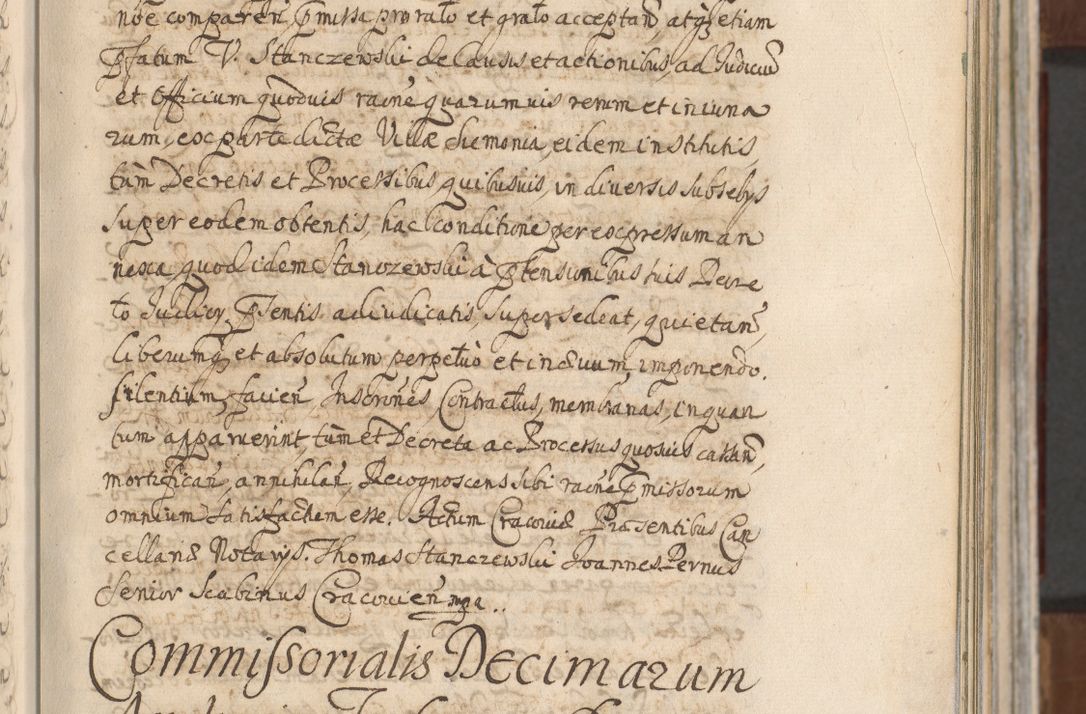 nõe comparẽn, p̃missa pro rato et grato acceptañ, atq3 etiam
P̃fatum V. Stanczewski de causis et actionibus, ad Judiciũ
et Officium quoduis raõne quarumuis rerum et iniuria
rum, ex parte dictæ Villæ Siemonia, eidem institutis,
tùm Decretis et Processibus quibusuis, in diversis subselijs
super eodem obtentis, hac conditione per expressum an
nexa, quod idem Stanczewski à p̃tensionibus suis Decre
to Judicij p̃sentis adiudicatis, supersedeat, quietañ,
liberumq3 et absolutum perpetuò et in æuum, imponendo.
silentium, facieñ, Inscrõnes Contractus, membranas, in quan
tum apparuerint, tùm et Decreta ac Processus quosuis cassañ,
mortificañ, annihilañ, Recognoscens sibi raõne p̃missorum
omnium satisfactum esse. Actum Cracoviæ Præsentibus Can
cellariæ Notarijs. Thomas Stanczewski Joannes Pernus
Senior Scabinus Cracovieñ mpa..
Commissorialis Decimarum